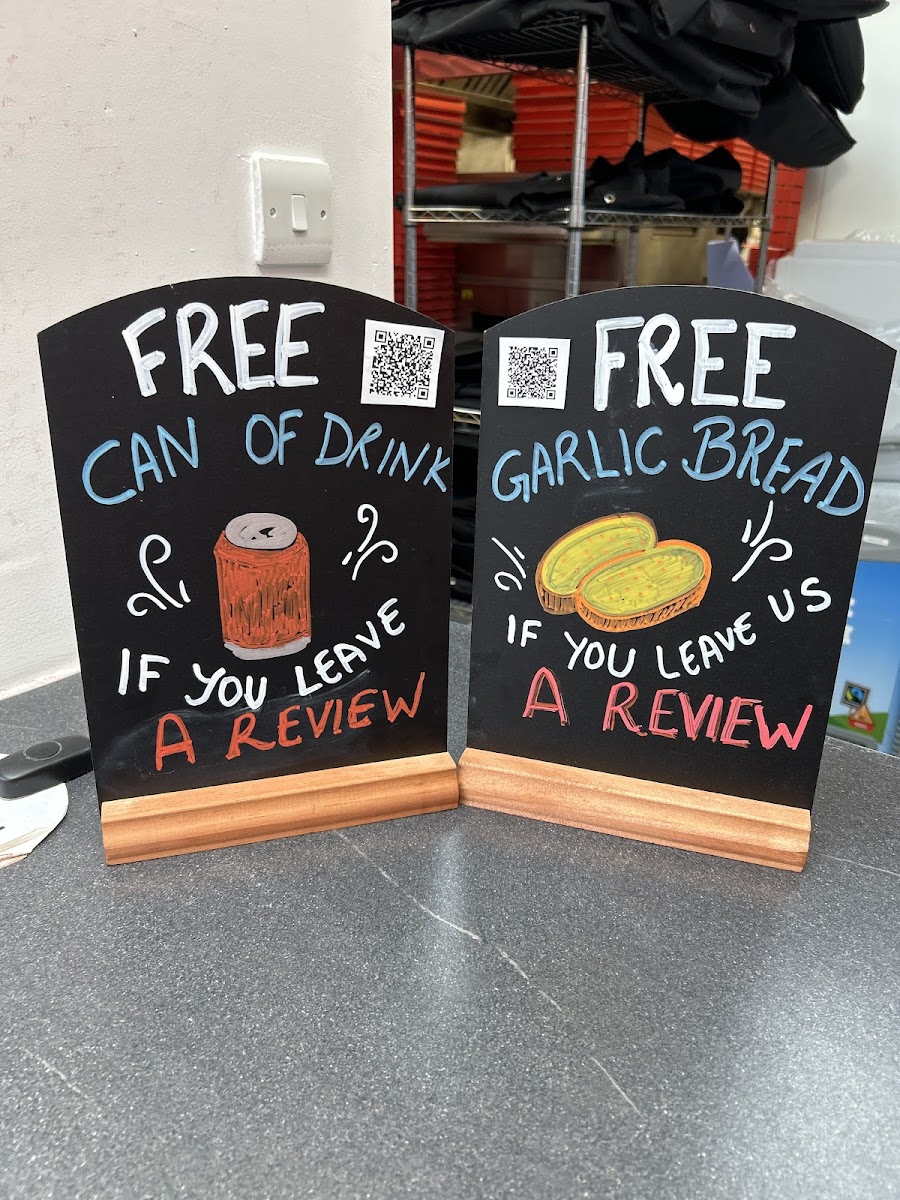 FREE
CAN OF DRINK
IF YOU LEAVE
A REVIEW
FREE
GARLIC BREAD
IF YOU LEAVE US
A REVIEW